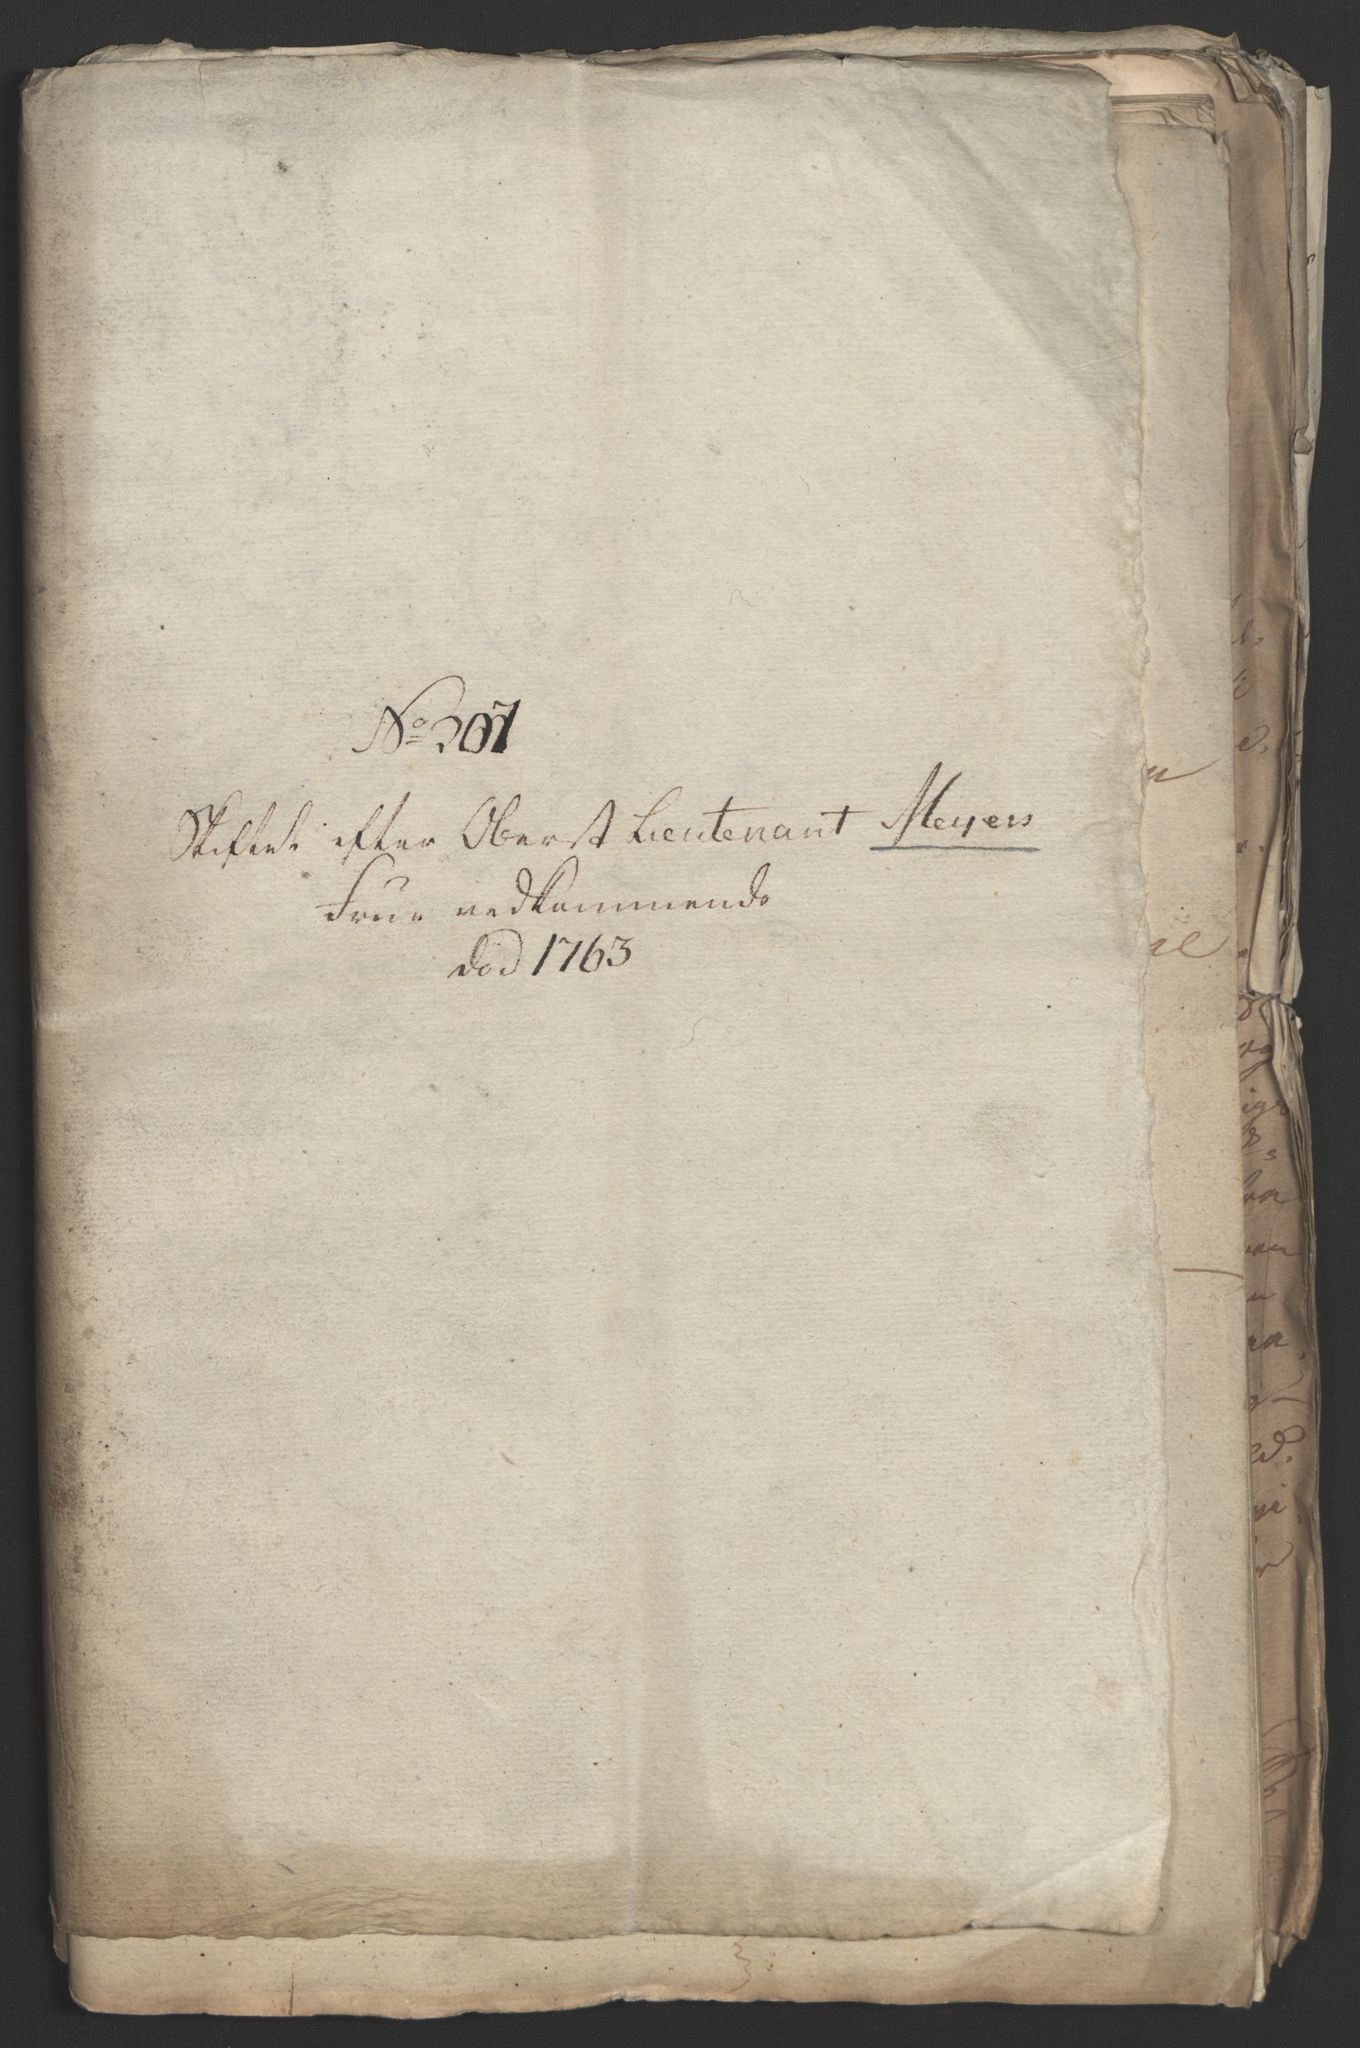 No 307
Skiftet efter Oberst Lieutenant Meyers
Frue vedkommende
död 1763